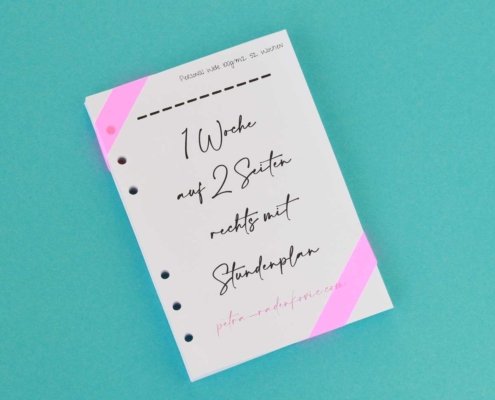 Personal Wide 100g/m2 52 Wochen
1 Woche
auf 2 Seiten
rechts mit
Stundenplan
petra_radenkovic.com